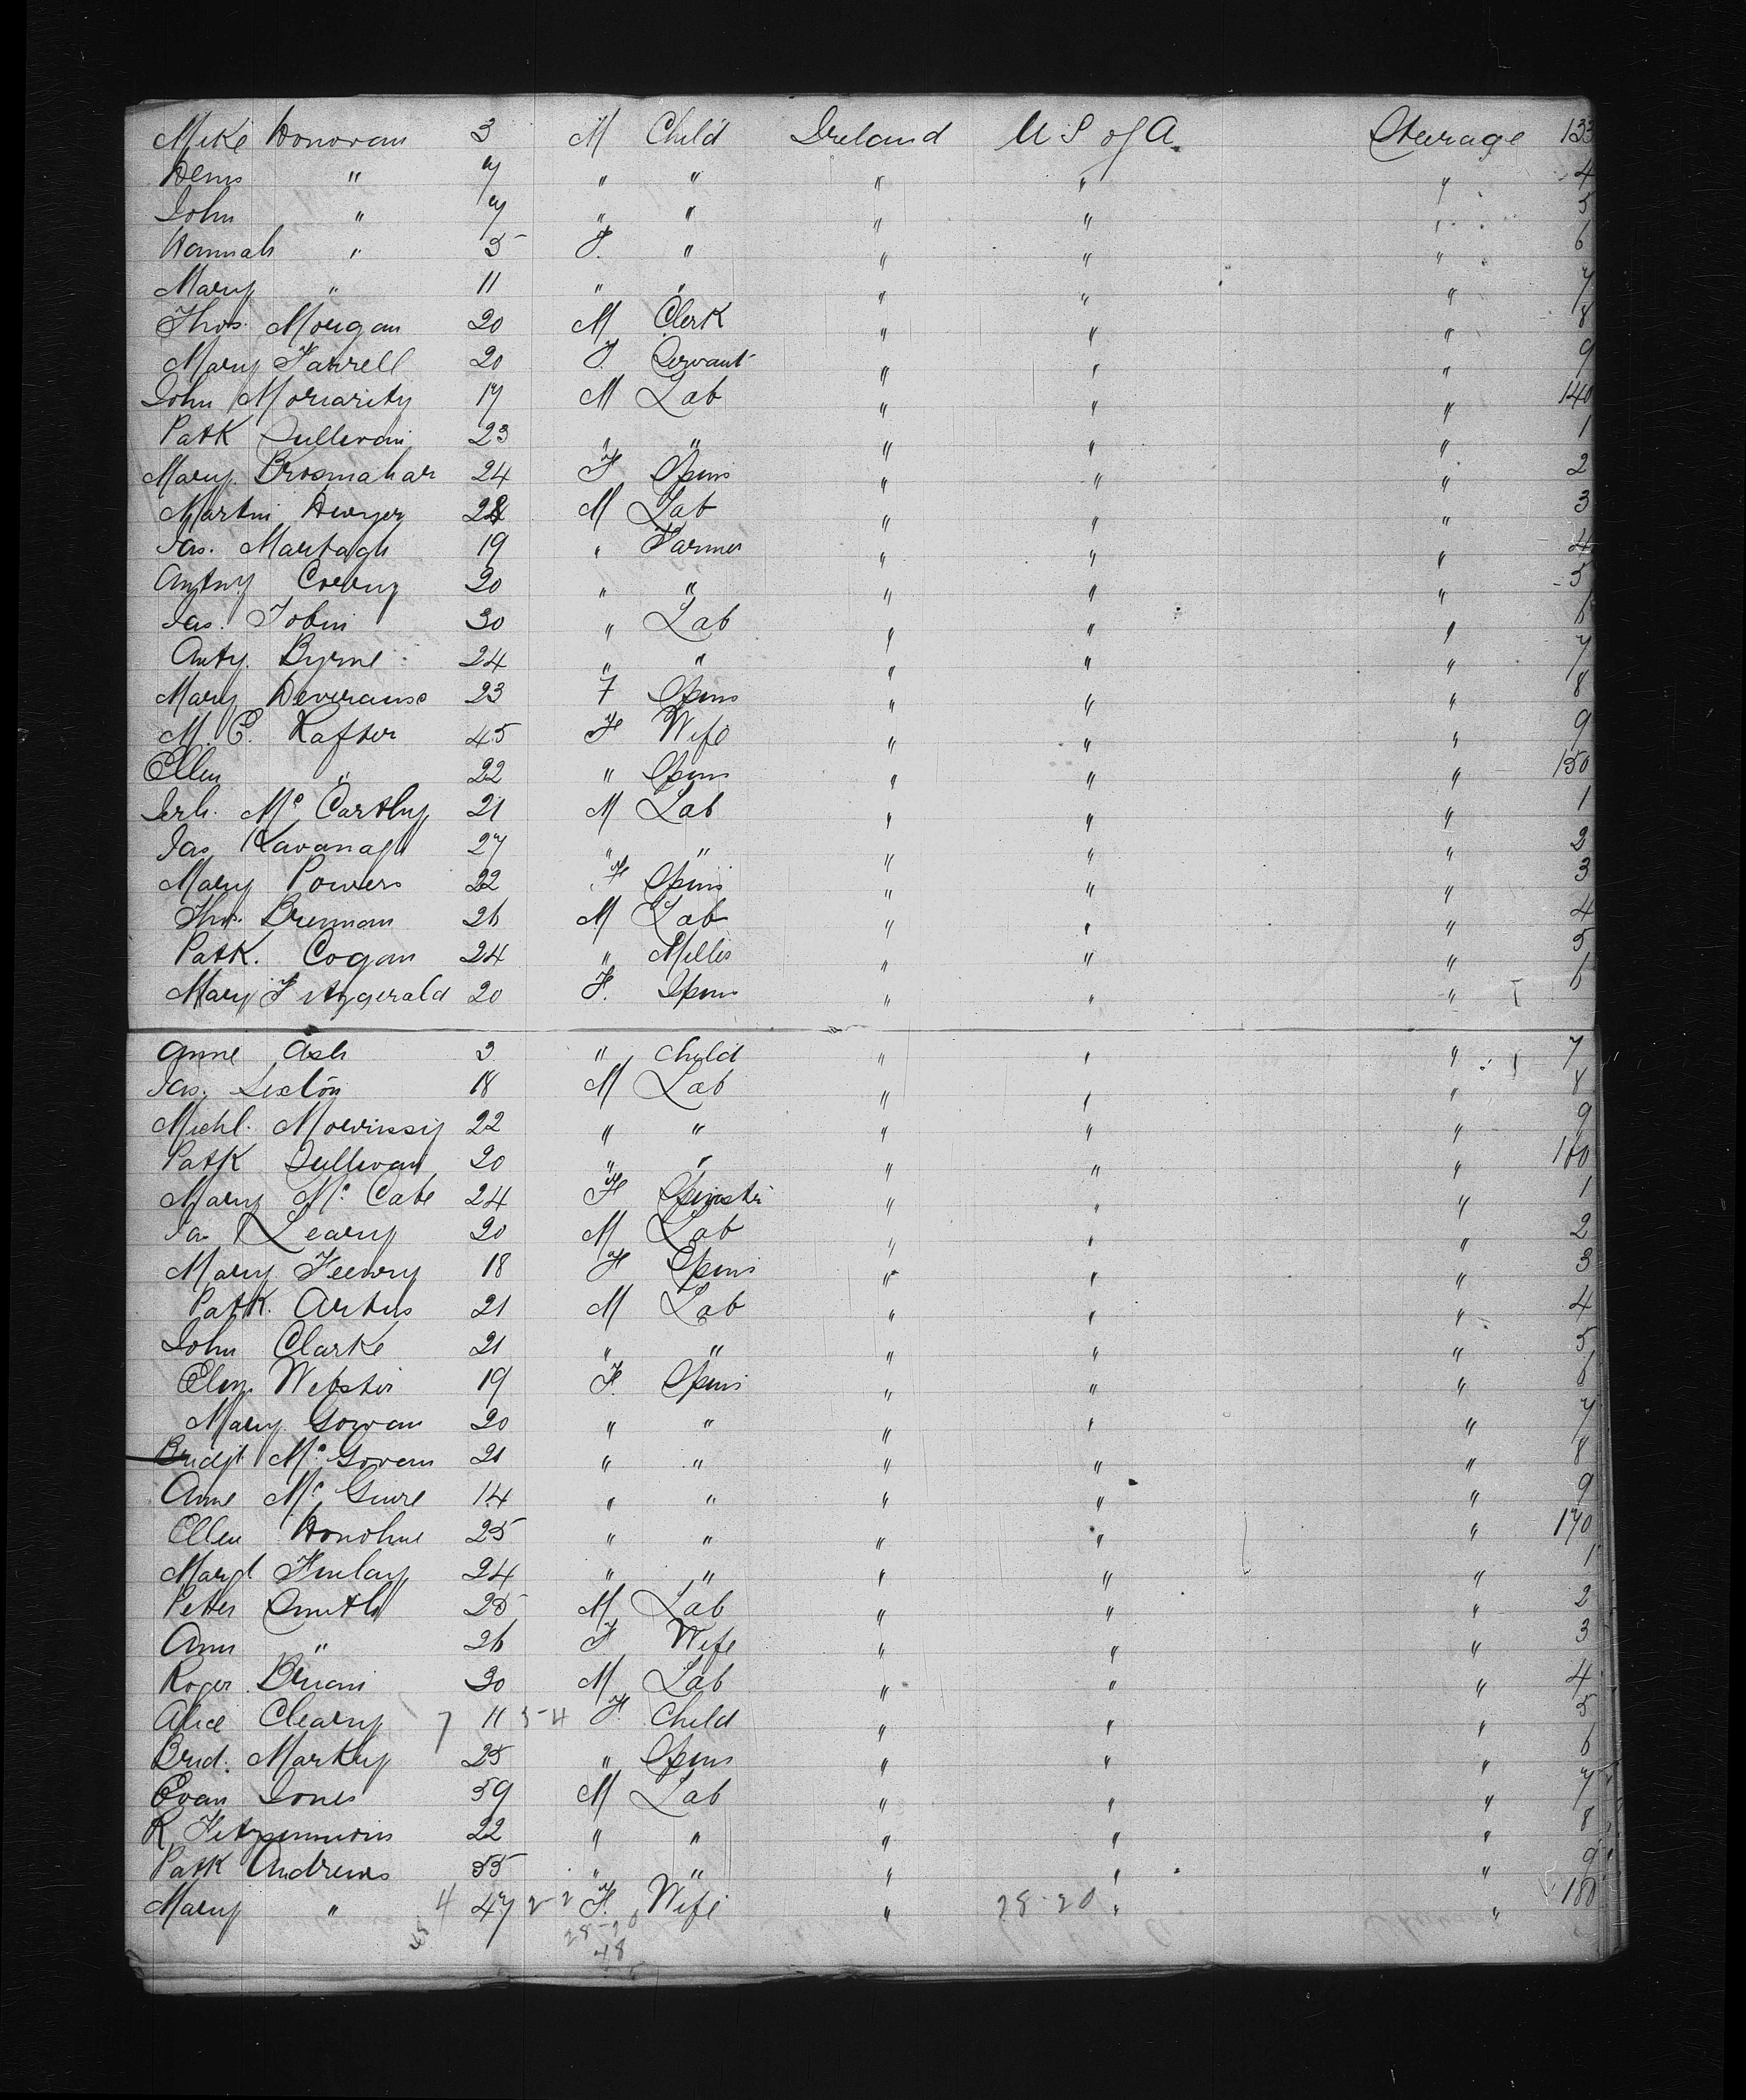 Mike Donovan 3 M Child Ireland U S of A. Steerage 133
Denis " 7 " " " " " 4
John " 7 " " " " " 5
Hannah " 5 F. " " " " 6
Mary " 11 " " " " " 7
Thos. Morgan 20 M Clerk " " " 8
Mary Farrell 20 F. Servant " " " 9
John Moriarity 17 M Lab " " " 140
Patk Sullivan 23 " " " " " 1
Mary Brosnahar 24 F Spins " " " 2
Martin Dwyer 24 M Lab " " " 3
Jas. Martagh 19 " Farmer " " " 4
Antny 20 " " " " " 5
Jas. Tobin 30 " Lab " " " 6
Anty. Byrne 24 " " " " " 7
Mary Deverause 23 F Spins " " " 8
M. E. Rafter 45 F Wife " " " 9
Ellen " 22 " Spins " " " 150
Jerh. Mc Carthy 21 M Lab " " " 1
Jas Kavanagh 27 " " " " " 2
Mary Powers 22 F Spins " " " 3
Thos. Brennan 26 M Lab " " " 4
Patk. Cogan 24 " Miller " " " 5
Mary Fitzgerald 20 F. Spins " " " 6
Anne Ash 3 " Child " " " 7
Jas. Sexton 18 M Lab " " " 8
Michl. Morrissy 22 " " " " " 9
Patk Sullivan 20 " " " " " 160
Mary Mc Cabe 24 F Spinster " " " 1
Jas Leary 20 M Lab " " " 2
Mary Feeney 18 F Spins " " " 3
Patk. Artus 21 M Lab " " " 4
John Clarke 21 " " " " " 5
Eliz. Webster 19 F. Spins " " " 6
Mary Gowan 20 " " " " " 7
Bridjt Mc Govern 21 " " " " " 8
Anne Mc Guire 14 " " " " " 9
Ellen Donohue 25 " " " " " 170
Margt Finlay 24 " " " " " 1
Peter Smith 25 M Lab " " " 2
Ann " 26 F Wife " " " 3
Roger Brien 30 M Lab " " " 4
Alice Cleary 7 11 5-4 F. Child " " " 5
Brid. Markey 25 " Spins " " " 6
Evan Jones 59 M Lab " " " 7
R. Fitzsimmons 22 " " " " " 8
Patk Andrews 55 " " " " " 9
Mary " 4 47 2-2 F. Wife " 28-20 " " 180
28-20
48